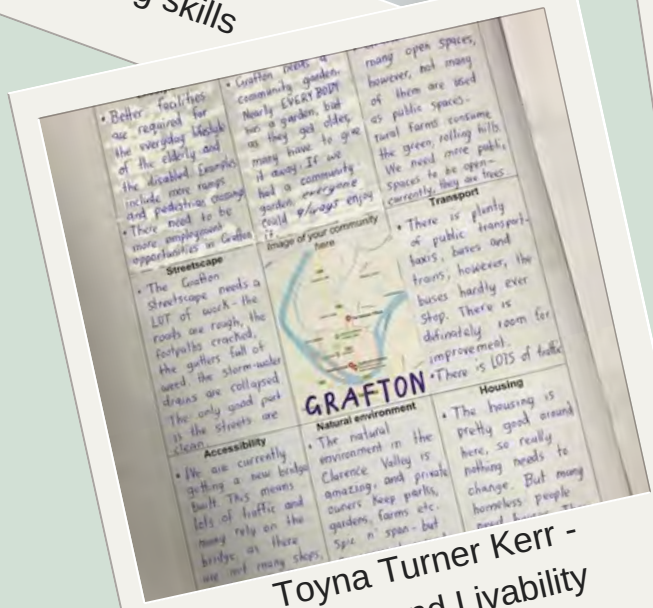 g skills
• Better facilities
are required for
the everyday lifestyle
of the elderly and
the disabled. Examples
include more ramps
and pedestrian crossings
• There need to be
more employment
opportunities in Grafton
• Grafton needs a
community garden.
Nearly EVERYBODY
has a garden, but
as they get older,
many have to give
it away. If we
had a community
garden, everyone
could always enjoy
it.
many open spaces,
however, not many
of them are used
as public spaces.
rural farms consume
the green, rolling hills.
We need more public
spaces to be open-
currently, they are trees
Streetscape
• The Grafton
streetscape needs a
LOT of work - the
roads are rough, the
footpaths cracked,
the gutters full of
weed the storm-water
drains are collapsed
The only good part
is the streets are
clean.
Image of your community
here
GRAFTON
Transport
• There is plenty
of public transport-
taxis, buses and
trains, however, the
buses hardly ever
stop. There is
difinately room for
improvement.
• There is LOTS of traffic
Accessibility
• We are currently
getting a new bridge
built. This means
lots of traffic and
many rely on the
bridge, as there
are not many shops,
Natural environment
• The natural
environment in the
Clarence Valley is
amazing, and private
owners keep parks,
gardens, farms etc.
Spic n' span - but
Housing
• The housing is
pretty good around
here, so really
nothing needs to
change. But many
homeless people
need
Toyna Turner Kerr -
nd Livability